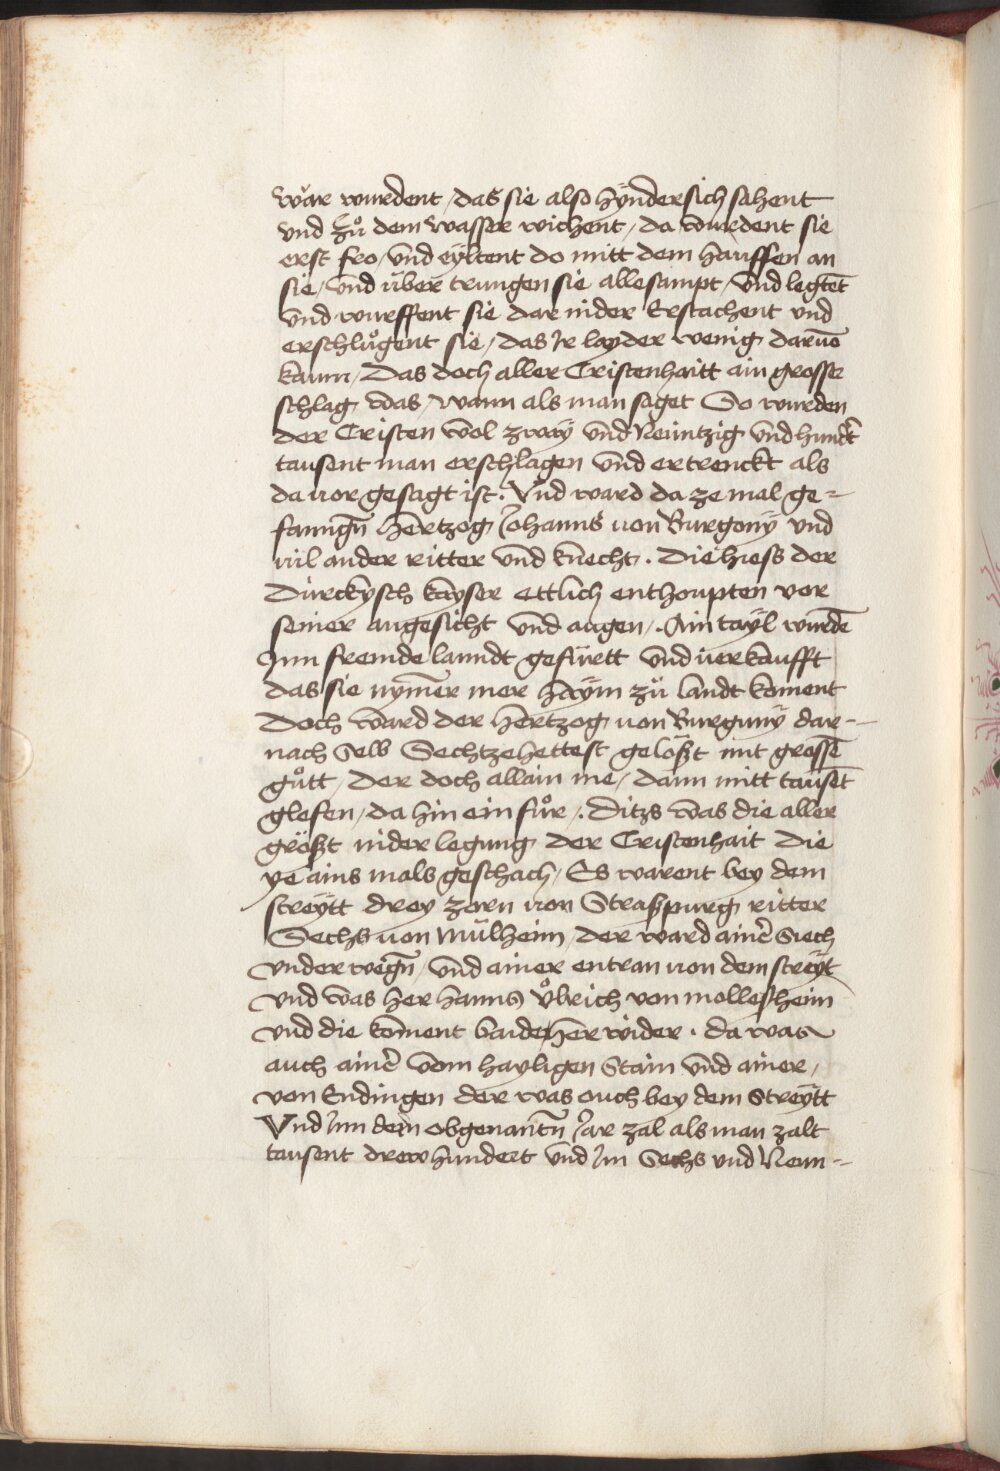 wår wurdent / das sie also hÿndersich sahent
vnd zů dem wasser wichent / da wurdent sie
erst fro / vnd eyltent do mitt dem hauffen an
sie / vnd über trungen sie allesampt / vnd legtēt
vnd wurffent sie dar nider Erstachent vnd
erschlůgent sie / das Ir layder wenig daruō
kam / Das doch aller Cristenhaitt ain grosser
schlag was / wann als man saget So wurden
der Cristen wol zway vnd Neüntzig vnd hundt̄
tausent man erschlagen vnd ertrenckt als
da uor gesagt ist. Vnd ward da ze mal ge=
fanngn̄ Hertzog Johanns von Burgony vnd
uil ander ritter vnd knecht. Die hiess der
Dürckysch kayser ettlich enthoupten vor
seiner angesicht vnd augen /. Ain tayl wurdē
Inn fremde lanndt gefürtt vnd uerkaufft
das sie nym̄er mer haym zů landt koment
Doch ward der Hertzog uon Burguny dar=
nach Selb Sechtzehettest gelößt mit grossē
gůtt / der doch allain me / dann mitt tausēt
glefen / da hin ein fůr /. Ditzs was die aller
größt nider legung der Cristenhait die
ye ains mals geschach / Es warent bey dem
streytt drey zorn uon Straßpurg ritter
Sechs uon Mülheim / der ward ainē Siech
vnder wegn̄ / vnd ainer entran uon dem streyt
vnd was her Hanns Vͦlrich von mollesheim
vnd die koment baide her wider . da was
auch ainē vom hayligen Stain vnd ainer /
von Endingen der was ouch bey dem Streytt
Vnd Inn dem obgenantn̄ Jar zal als man zalt
tausent drewhundert vnd Im Sechs vnd Neun=